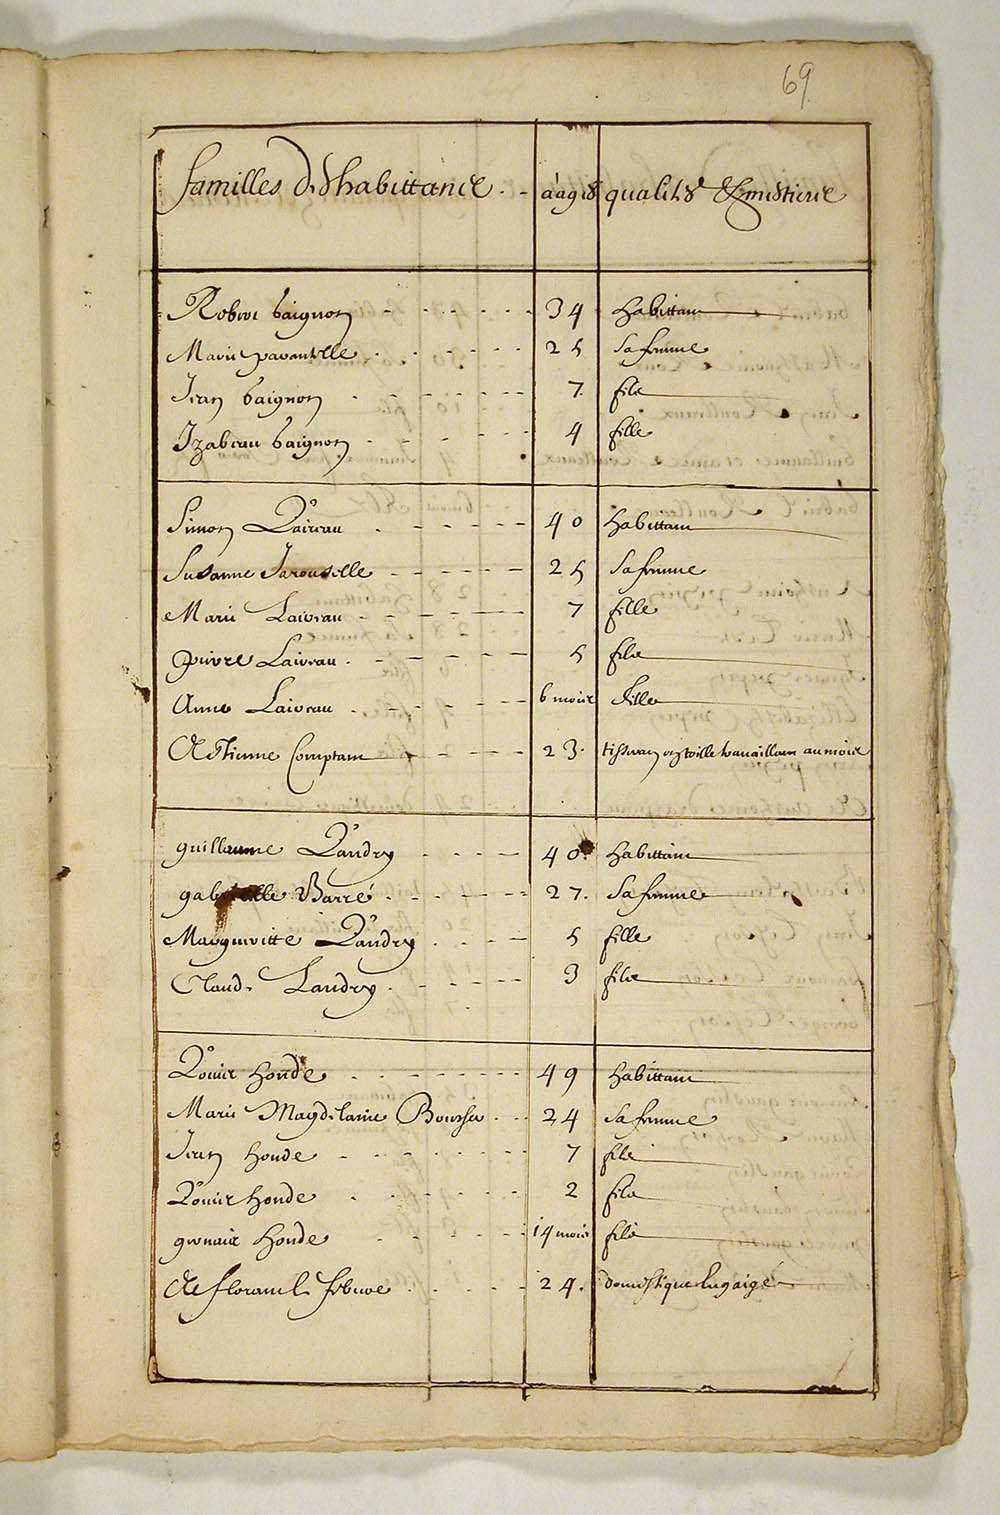 69
familles d'habittans aages qualites & mestiers
Robert Gaignon 34 habittant
Marie paranttelle 25 sa femme
Jean Gaignon 7. fils
Izabeau Gaignon 4 fille
Simon L'aireau 40 habittant
Susanne Jarouselle 25 sa femme
Marie Laireau 7 fille
pierre Laireau 5 fils
Anne Laireau 6 mois fille
Estienne Comptant 23. tisseran en toille travaillant au mois
guillaume L'andry 40. habittant
gabrielle Barré 27. sa femme
Margueritte L'andry 5 fille
Claude Landry 3 fils
L'ouis Houde 49 habittant
Marie Magdelaine Boucher 24 sa femme
Jean houde 7 fils
L'ouis houde 2 fils
gervais Houde 14 mois fils
& florant febvre 24. domestique Engaigé